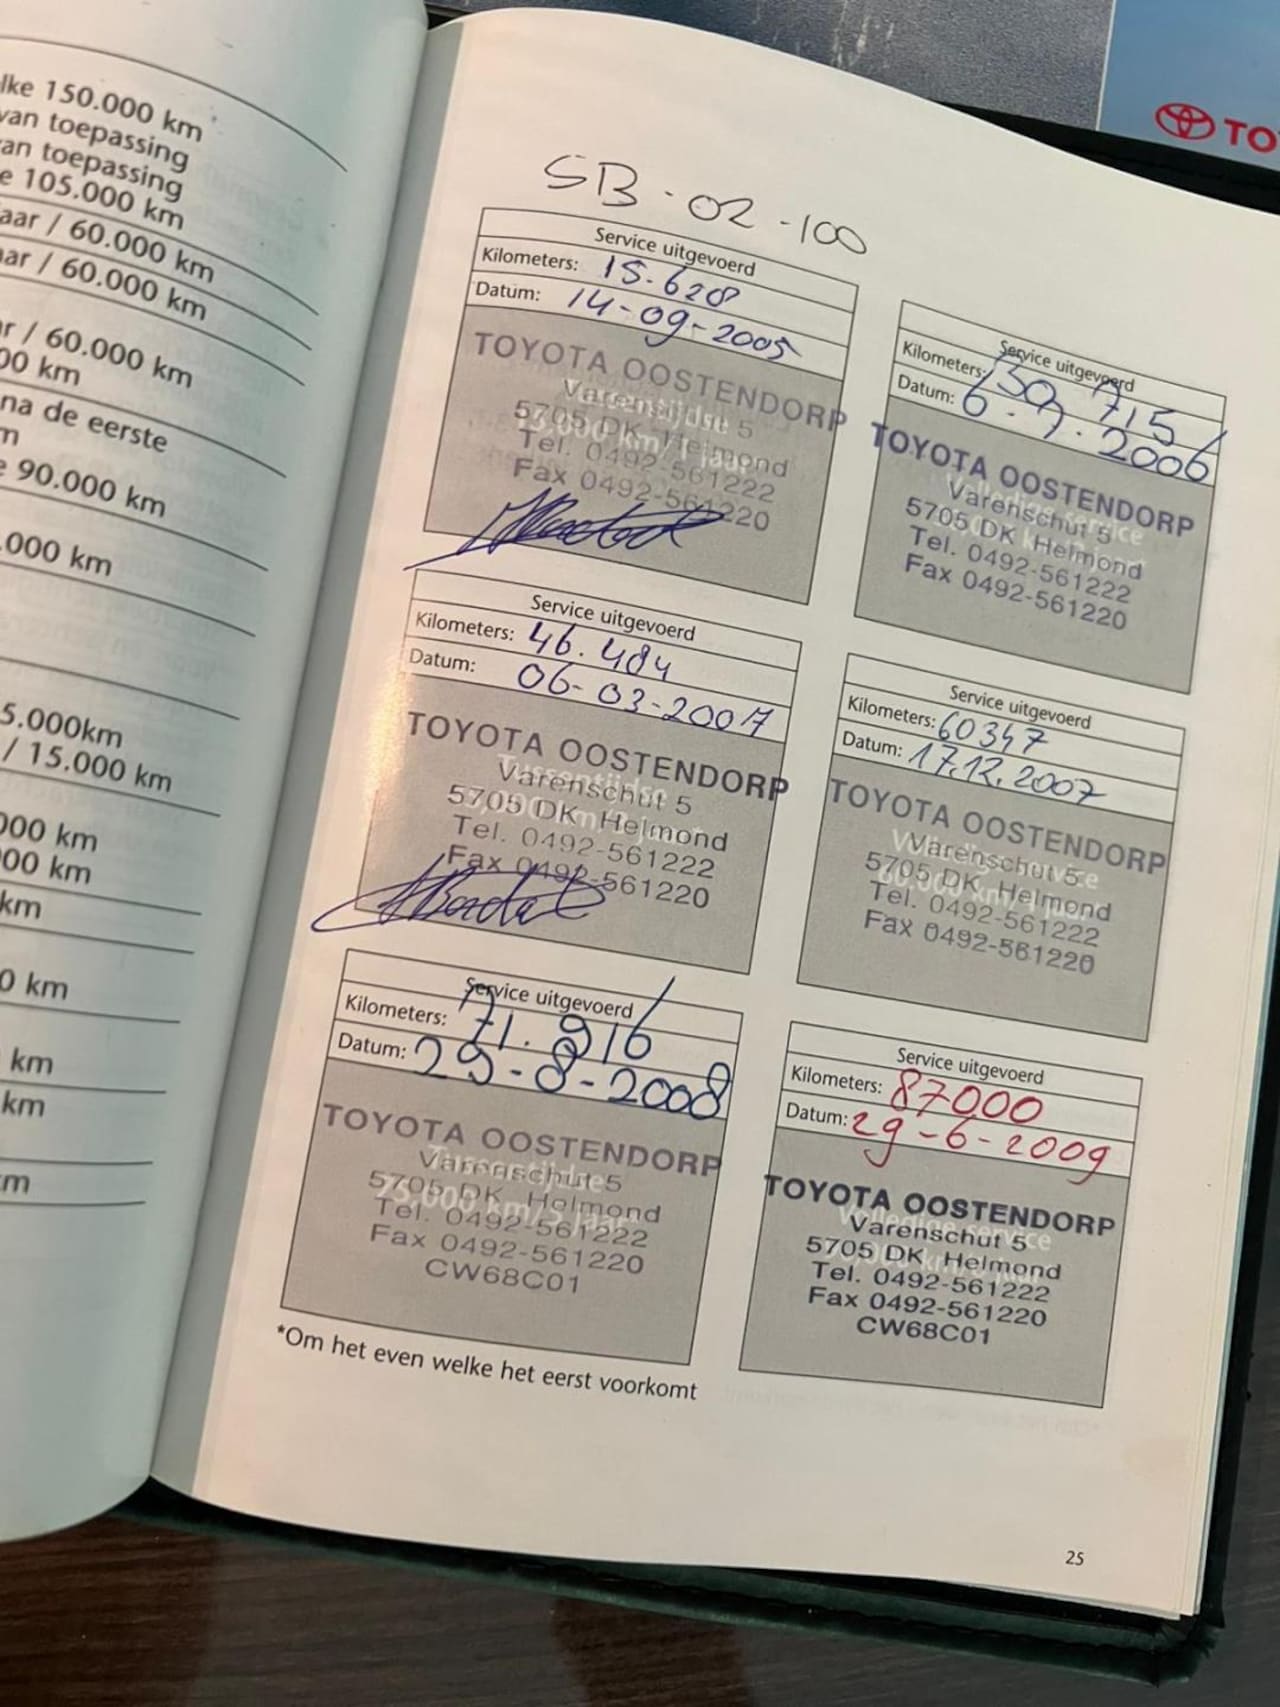 lke 150.000 km
van toepassing
an toepassing
e 105.000 km
aar / 60.000 km
aar / 60.000 km
r / 60.000 km
00 km
na de eerste
m
e 90.000 km
.000 km
5.000km
/ 15.000 km
000 km
00 km
km
0 km
km
km
m
TO
SB-02-100
Service uitgevoerd
Kilometers: 15.628
Datum: 14-09-2005
TOYOTA OOSTENDORP
Varenschut 5
5705 DK Helmond
Tel. 0492-561222
Fax 0492-561220
Service uitgevoerd
Kilometers: 30.715
Datum: 6.9.2006
TOYOTA OOSTENDORP
Varenschut 5
5705 DK Helmond
Tel. 0492-561222
Fax 0492-561220
Service uitgevoerd
Kilometers: 46.484
Datum: 06-03-2007
TOYOTA OOSTENDORP
Varenschut 5
5705 DK Helmond
Tel. 0492-561222
Fax 0492-561220
Service uitgevoerd
Kilometers: 60347
Datum: 17.12.2007
TOYOTA OOSTENDORP
Varenschut 5
5705 DK Helmond
Tel. 0492-561222
Fax 0492-561220
Service uitgevoerd
Kilometers: 71.916
Datum: 29-8-2008
TOYOTA OOSTENDORP
Varenschut 5
5705 DK Helmond
Tel. 0492-561222
Fax 0492-561220
CW68C01
Service uitgevoerd
Kilometers: 87000
Datum: 29-6-2009
TOYOTA OOSTENDORP
Varenschut 5
5705 DK Helmond
Tel. 0492-561222
Fax 0492-561220
CW68C01
*Om het even welke het eerst voorkomt
25